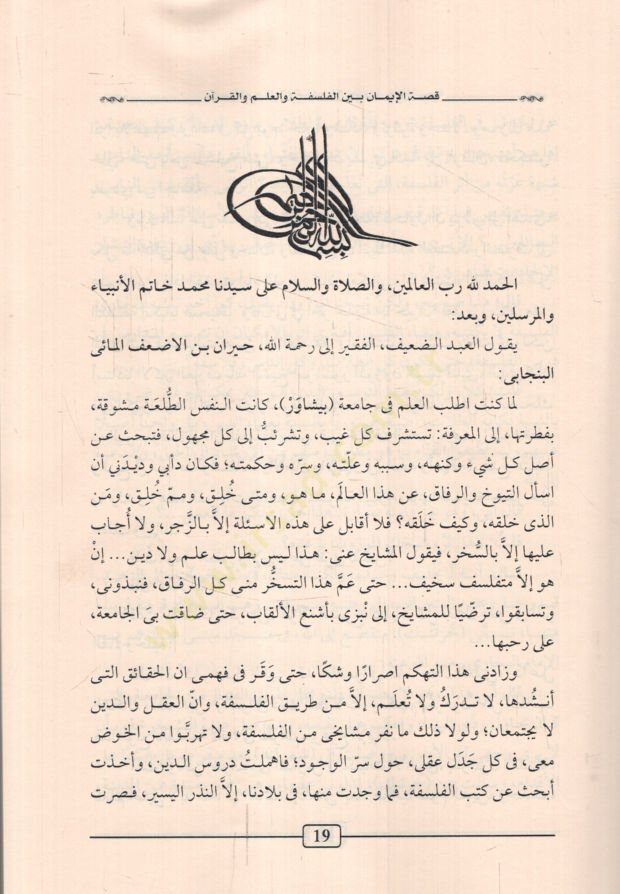 قصة الإيمان بين الفلسفة والعلم والقرآن
الحمد لله رب العالمين، والصلاة والسلام على سيدنا محمد خاتم الأنبياء
والمرسلين، وبعد:
يقول العبد الضعيف، الفقير إلى رحمة الله، حيران بن الاضعف المائى
البنجابى:
لما كنت اطلب العلم فى جامعة (بيشاوَرْ)، كانت النفس الطُّلعَة مشوقة،
بفطرتها، إلى المعرفة: تستشرف كل غيب، وتشرئبُّ إلى كل مجهول، فتبحث عن
أصل كل شيء وكنهه، وسببه وعلّته، وسرّه وحكمته؛ فكان دأبي وديْدَني أن
اسأل التيوخ والرفاق، عن هذا العالَم، ما هو، ومتى خُلِق، وممّ خُلِق، ومَن
الذى خلقه، وكيف خَلَقه؟ فلا أقابل على هذه الاسئلة إلاَّ بالزَّجر، ولا أُجاب
عليها إلاَّ بالسُّخر، فيقول المشايخ عنى: هذا ليس بطالب علم ولا دين... إنْ
هو إلاَّ متفلسف سخيف... حتى عَمَّ هذا التسخُّر منى كل الرفاق، فنبذونى،
وتسابقوا، ترضّيًا للمشايخ، إلى نُبزى بأشنع الألقاب، حتى ضاقت بىَ الجامعة،
على رحبها...
وزادنى هذا التهكم اصرارًا وشكًا، حتى وَقَر فى فهمى ان الحقائق التى
أنشُدها، لا تدرَكُ ولا تُعلَم، إلاَّ من طريق الفلسفة، وانّ العقل والدين
لا يجتمعان؛ ولولا ذلك ما نفر مشايخى من الفلسفة، ولا تهربَّوا من الخوض
معى، فى كل جَدَل عقلى، حول سرّ الوجود؛ فاهملتُ دروس الدين، وأخذت
أبحث عن كتب الفلسفة، فما وجدت منها، فى بلادنا، إلاَّ النذر اليسير، فصرت
19